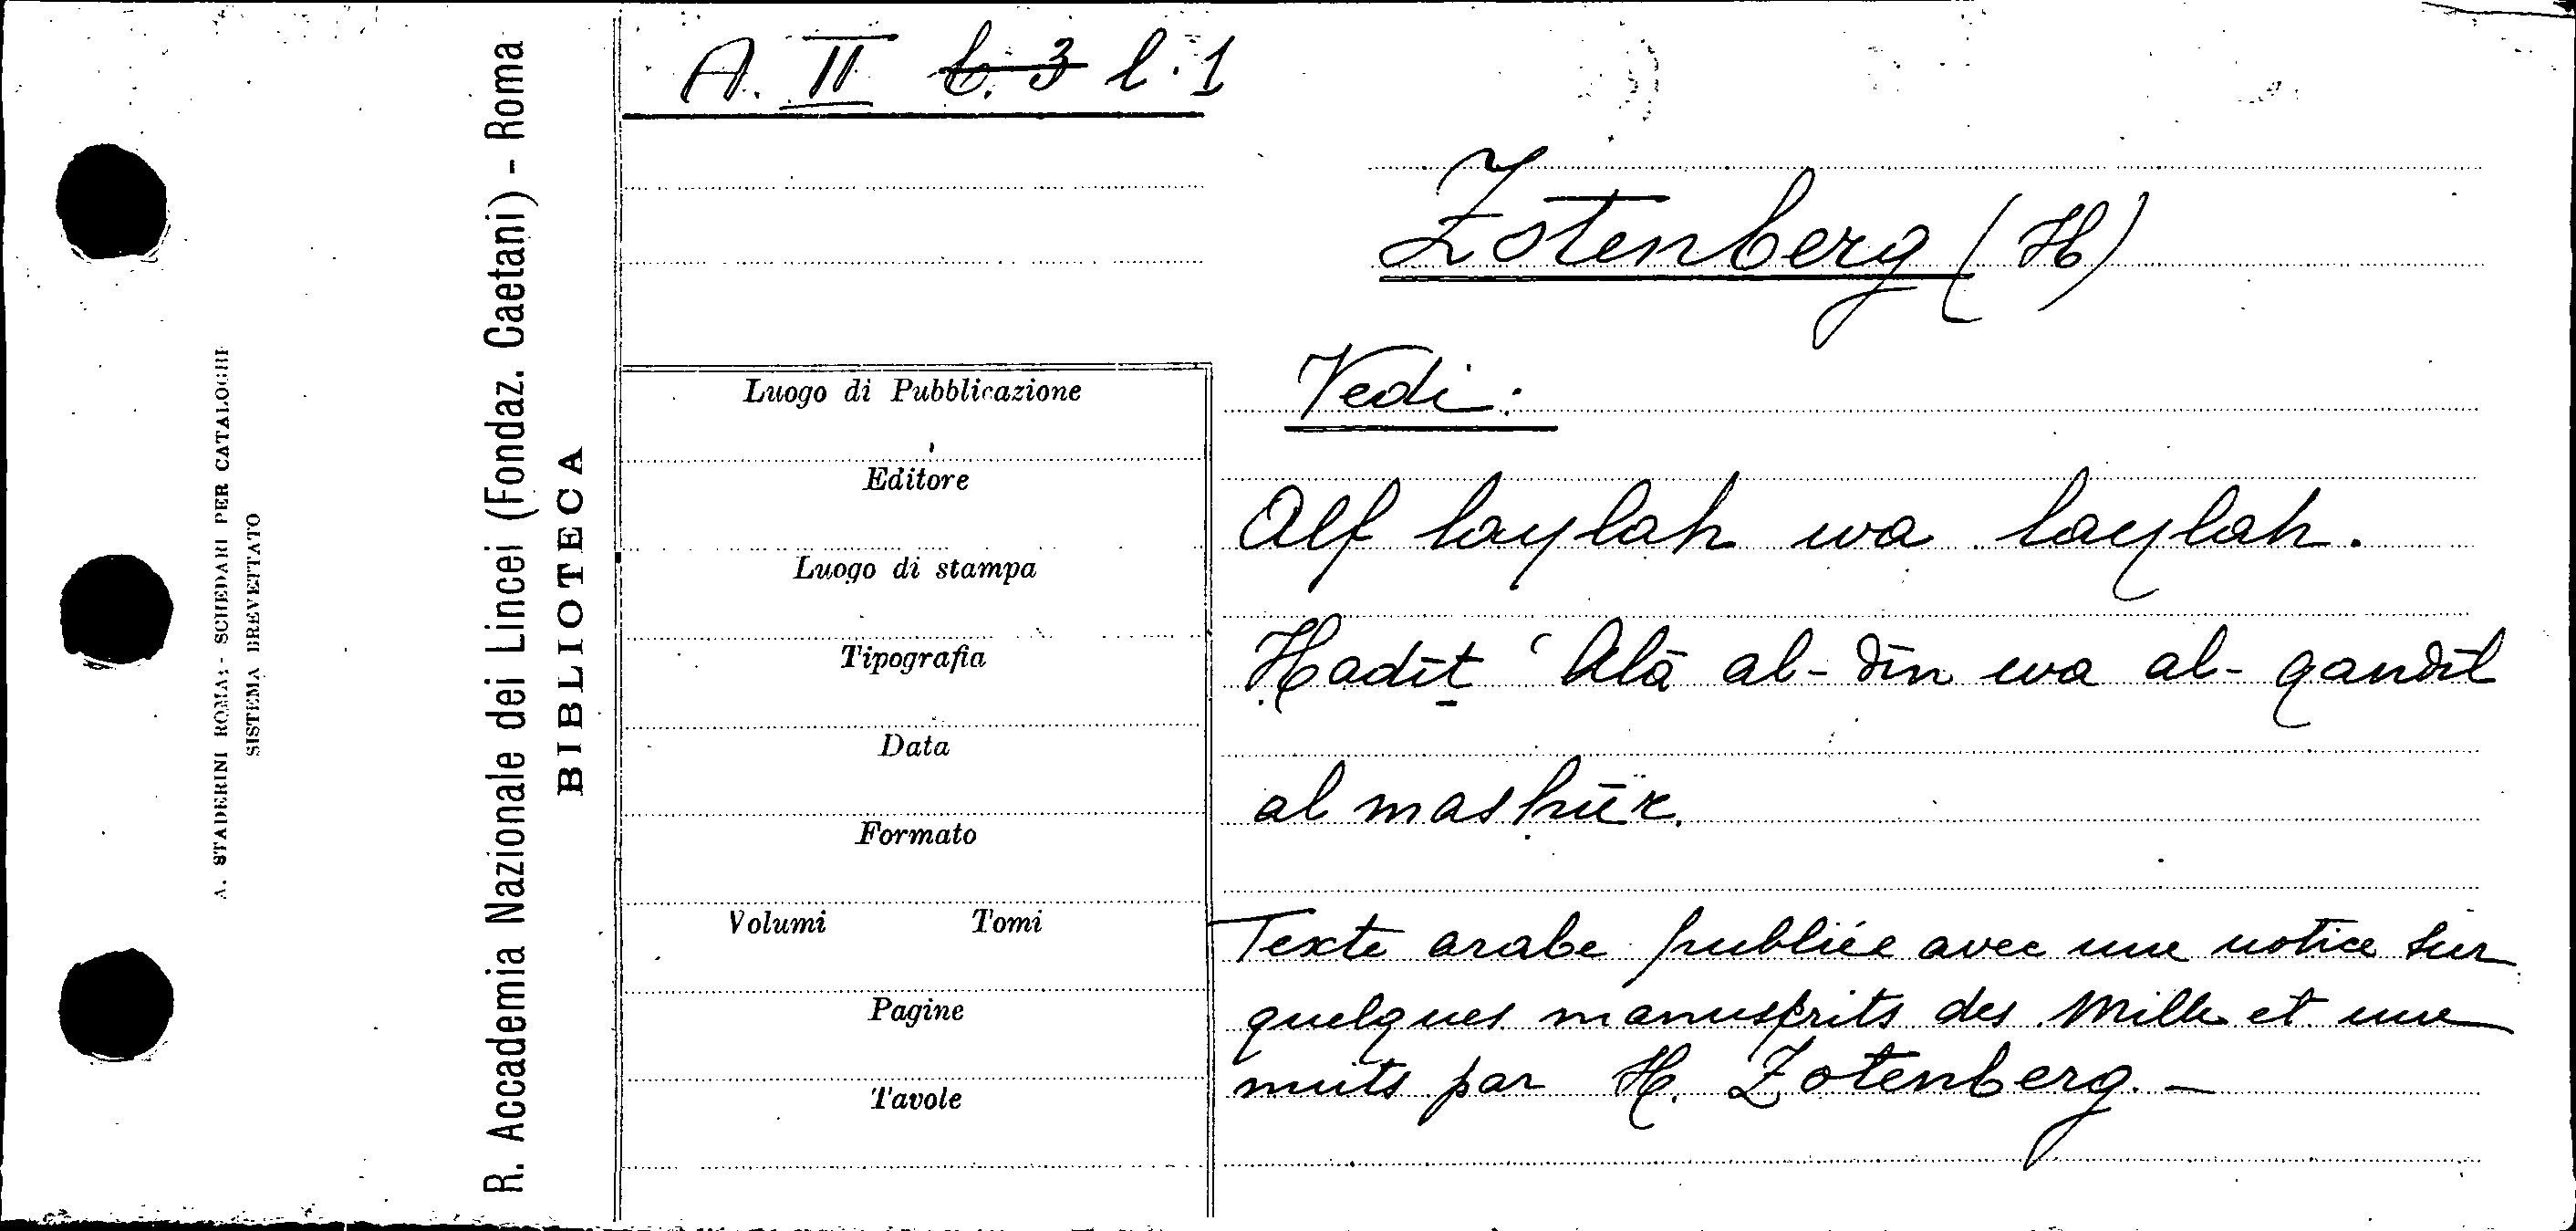 A. II b. 3 l. 1
Zotenberg (H)
Vedi:
Alf laylah wa laylah.
Ḥadīṯ ‘Alā al-dīn wa al-qandīl
al mashūr.
Texte arabe publiée avec une notice sur
quelques manuscrits des Mille et une
nuits par H. Zotenberg. —
Luogo di Pubblicazione
Editore
Luogo di stampa
Tipografia
Data
Formato
Volumi Tomi
Pagine
Tavole
R. Accademia Nazionale dei Lincei (Fondaz. Caetani) - Roma
BIBLIOTECA
A. STADERINI ROMA; - SCHEDARI PER CATALOGHI
SISTEMA BREVETTATO